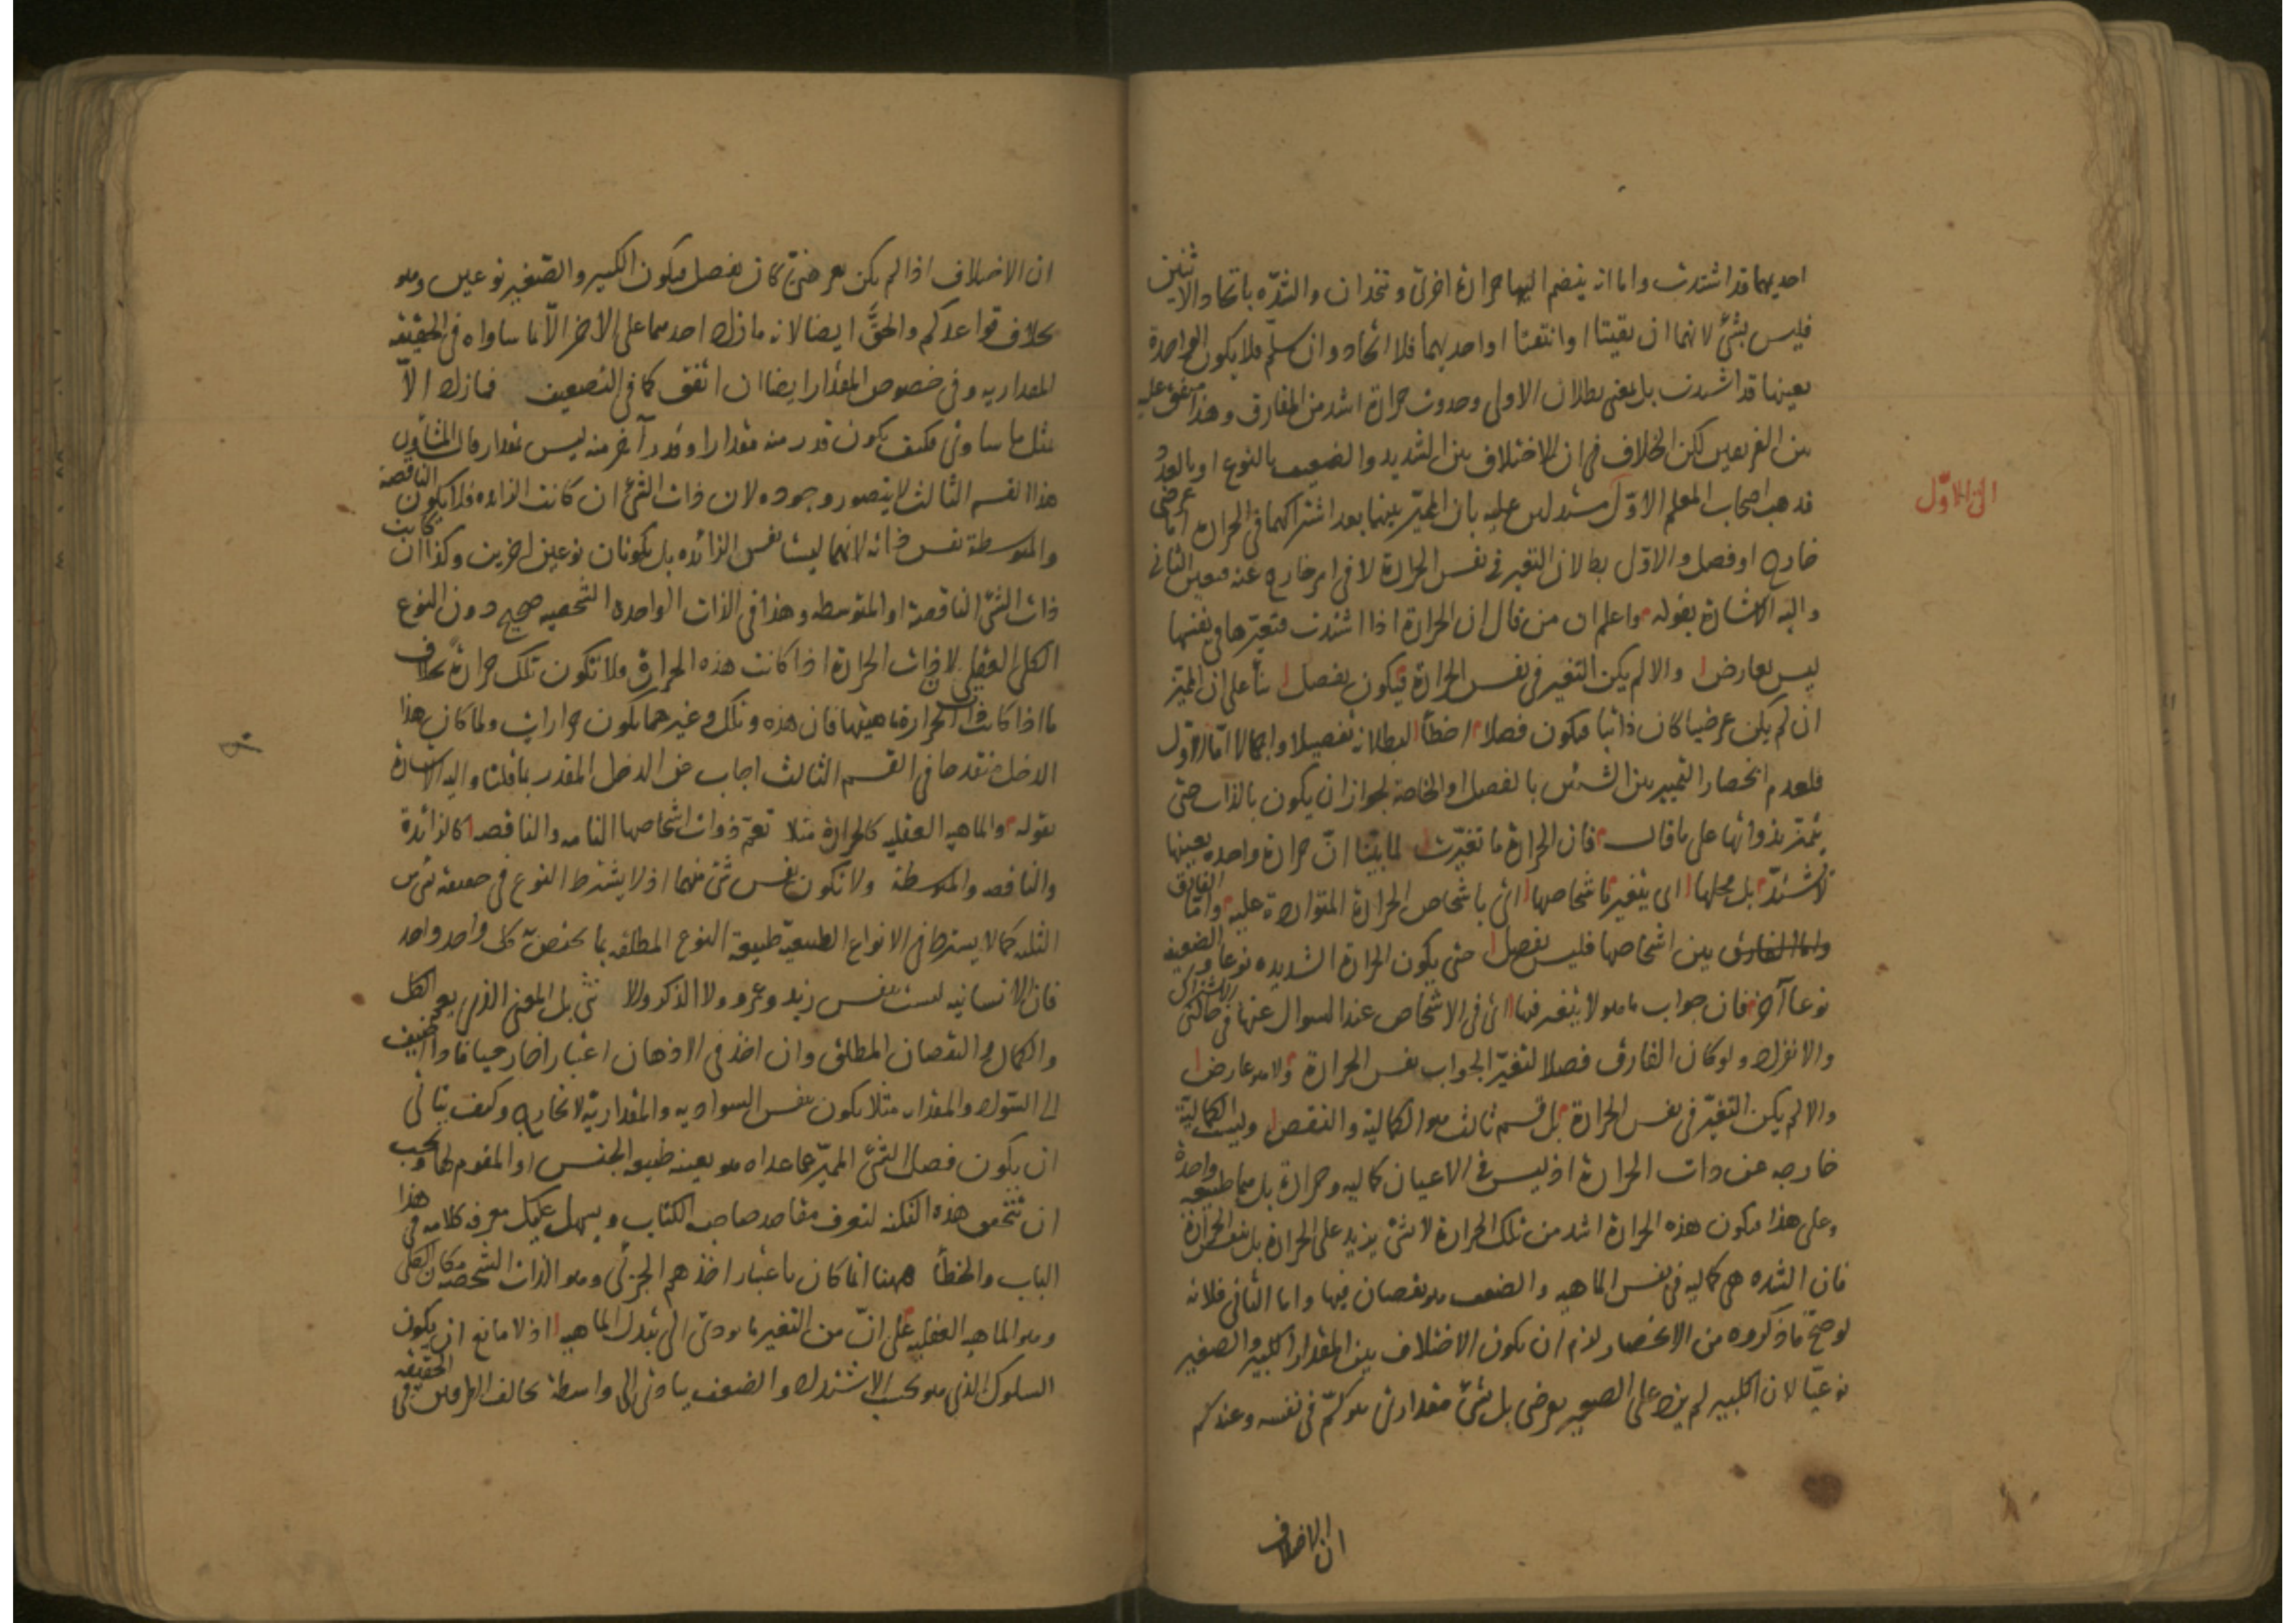 احديهما قد اشتدت واما ان ينضم اليها حرارة اخرى وتتحدان والشدّه باتحاد الاثنين
فليس بشئ لانهما ان بقيتا او انتفتا او احديهما فلا اتحاد وان سلّم فلا يكون الحرارة الواحدة
بعينها قد اشتدت بل بمعنى بطلان الاولى وحدوث حرارة اشد من المفارق وهذا متفق عليه
بين الفريقين لكن الخلاف فى ان الاختلاف بين الشديد والضعيف بالنوع او بالعدد
فذهب اصحاب المعلم الاوّل مستدلين عليه بان المميّز بينهما بعد اشتراكهما فى الحرارة اما عرضى
خارج او فصل والاوّل بط لان التغير فى نفس الحرارة لا فى امر خارج عنه فتعين الثانى
واليه الاشارة بقوله واعلم ان من قال ان الحرارة اذا اشتدت فتغيّرها فى نفسها
ليس بعارض والا لم يكن التغير فى نفس الحرارة فيكون بفصل بناً على ان المميّز
ان لم يكن عرضيا كان ذاتيا فيكون فصلا اخطأ لبطلانه تفصيلا واجمالا امّا الاوّل
فلعدم انحصار التمييز بين الشيئين بالفصل او الخاصة لجواز ان يكون بالذات حتى
يتميّز بذواتها على ما قال فان الحرارة ما تغيّرت لما بيّنا انّ حرارة واحده بعينها
لا تشتدّ بل محلها اى يتغير باشخاصها اى باشخاص الحرارة المتواردة عليه وامّا الفارق
بين اشخاصها فليس بفصل حتى يكون الحرارة الشديده نوعا والضعيفة
نوعا آخر فان جواب ما هو لا يتغير فيها اى فى الاشخاص عند السوال عنها فى حالتى الاشتراك
والانفراد ولو كان الفارق فصلا لتغيّر الجواب نفس الحرارة ولا هو عارض
والا لم يكن التغيّر فى نفس الحرارة بل قسم ثالث هو الكمالية والنقص وليست الكمالية
خارجه عن ذات الحرارة اذ ليس فى الاعيان كماليه وحرارة بل هما طبيعه واحدة
وعلى هذا يكون هذه الحرارة اشد من تلك الحرارة لا بشئ يزيد على الحرارة بل بنفس الحرارة
فان الشده هى كماليه فى نفس الماهيه والضعف هو نقصان فيها واما الثانى فلانه
لو صحّ ما ذكروه من الانحصار لزم ان يكون الاختلاف بين المقدار الكبير والصغير
نوعيّا لان الكبير لم يزد على الصغير بعرضى بل بشئ مقدارى هو كمّ فى نفسه وعندكم
ان الاختلاف
الى الاوّل
ان الاختلاف اذا لم يكن بعرضىّ كان بفصل فيكون الكبير والصّغير نوعين وهو
بخلاف قواعدكم والحقّ ايضا لانه ما زاد احدهما على الاخر الّا بما ساواه فى الحقيقه
المقداريه وفى خصوص المقدار ايضا ان اتفق كما فى التضعيف فما زاد الّا
بمثل ما ساوى فكيف يكون قدر منه مقدارا وقدر آخر منه ليس بمقدار قال المشاؤن
هذا القسم الثالث لا يتصور وجوده لان ذات الشئ ان كانت الزائده فلا يكون الناقصة
والمتوسطة نفس ذاته لانهما ليستا نفس الزائده بل يكونان نوعين اخرين وكذا ان كانت
ذات الشئ الناقصة او المتوسطه وهذا فى الذات الواحدة الشخصيه صحيح دون النوع
الكلى العقلى لان ذات الحرارة اذا كانت هذه الحرارة فلا تكون تلك حرارة بخلاف
ما اذا كانت ذات الحرارة ماهيتها فان هذه وتلك وغيرهما يكون حرارات ولما كان هذا
الدخل متقدحا فى القسم الثالث اجاب عن الدخل المقدر بما قلنا واليه الاشارة
بقوله والماهيه العقليه كالحرارة مثلا تعمّ ذوات اشخاصها التامه والناقصه كالزائدة
والناقصه والمتوسطة ولا تكون نفس شئ منهما اذ لا يشترط النوع فى حقيقه شئ من
الثلثه كما لا يشترط فى الانواع الطبيعيّة طبيعة النوع المطلقه بما يختصّ به كل واحد واحد
فان الانسانيه ليست نفس زيد وعمرو ولا الذكر والانثى بل المعنى الذى يعمّ الكل
والكمال مع النقصان المطلق وان اخذ فى الاذهان اعتبارا خارجيا فاذا اضيف
الى السّواد والمقدار مثلا يكون بنفس السواديه والمقداريّة لا بخارج وكيف يتأتى
ان يكون فصل الشئ المميّز عما عداه هو بعينه طبيعه الجنس او المقوم لها ويجب
ان تتحقق هذه النكته لتعرف مقاصد صاحب الكتاب ويسهل عليك معرفه كلامه فى هذا
الباب والخطأ ههنا انما كان باعتبار اخذهم الجزئى وهو الذات الشخصيه مكان الكلى
وهو الماهيه العقليه على انّ من التغير ما يودى الى تبدل الماهيه اذ لا مانع ان يكون
السلوك الذى هو بحسب الاشتداد والضعف يتأدى الى واسطة تخالف الطرفين فى الحقيقه